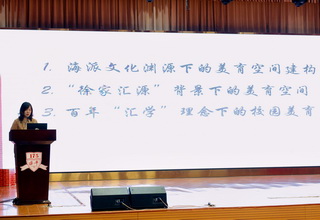 1. 海派文化渊源下的美育空间建构
2. “徐家汇源”背景下的美育空间
3. 百年“汇学”理念下的校园美育
175